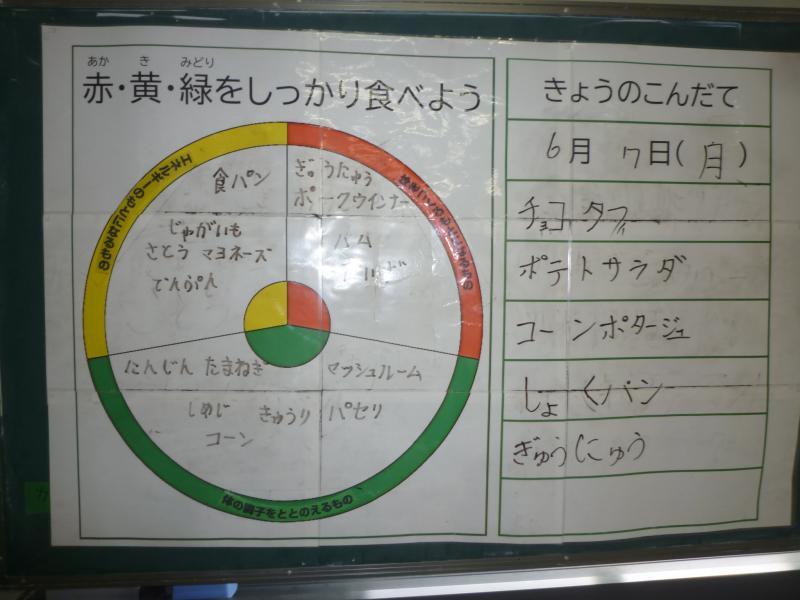 あか き みどり
赤・黄・緑をしっかり食べよう
エネルギーのもとになるもの
食パン
じゃがいも
さとう マヨネーズ
でんぷん
ぎゅうにゅう
ポークウインナー
ハム
にんじん たまねぎ マッシュルーム
しめじ きゅうり パセリ
コーン
体の調子をととのえるもの
きょうのこんだて
6月 7日(月)
チョコ
ポテトサラダ
コーンポタージュ
しょくパン
ぎゅうにゅう